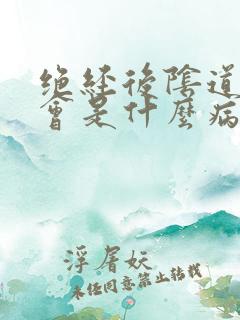 绝经後陰道
會是什麼病
浮屠妖
未经同意禁止转载